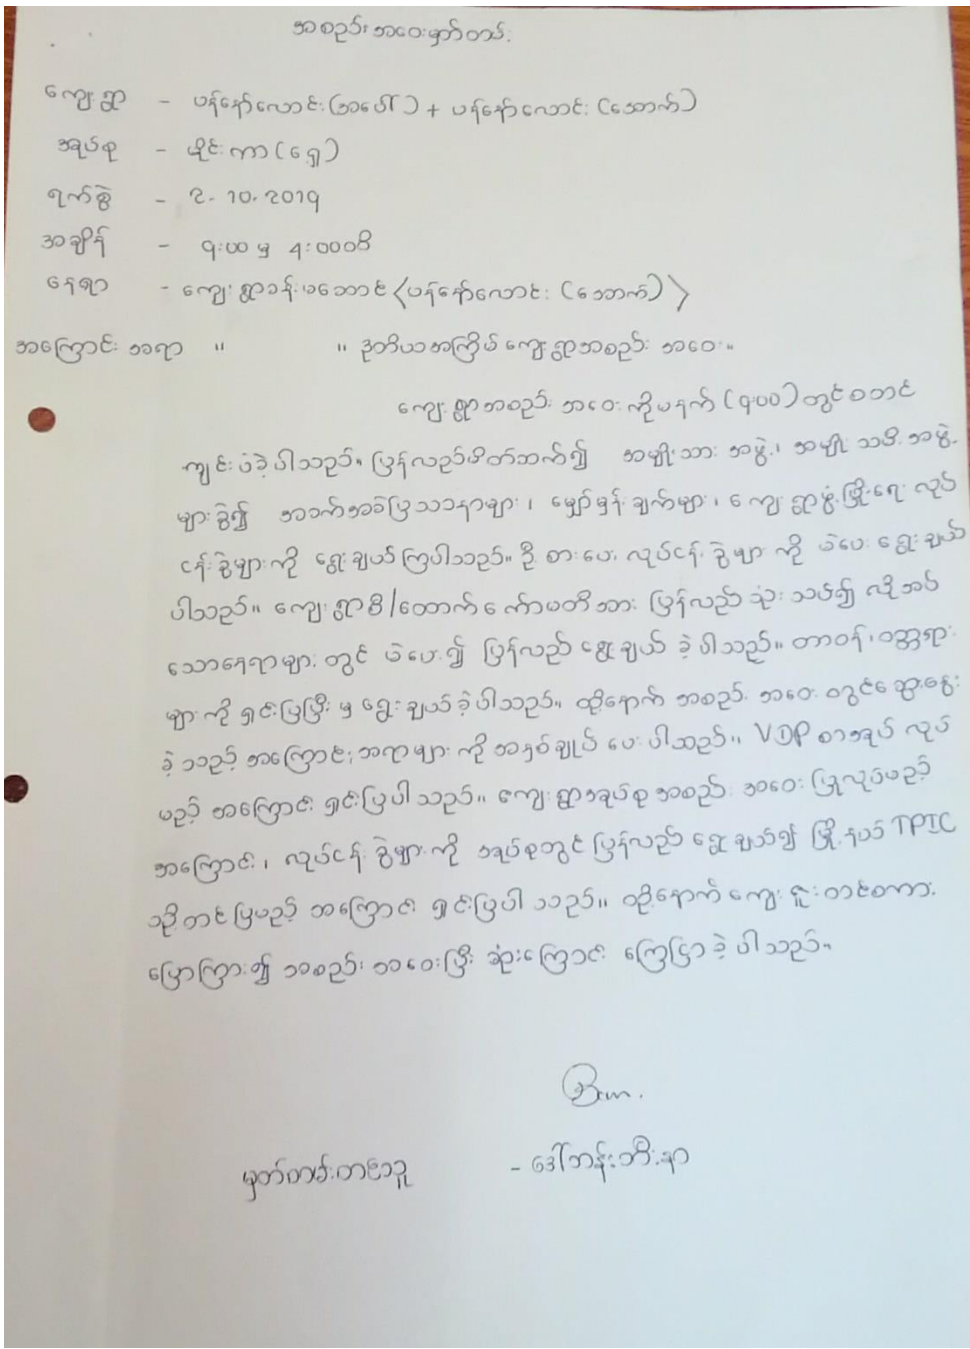 အစည်းအဝေးမှတ်တမ်း
ကျေးရွာ - ပန်နော်လောင်း(အပေါ်) + ပန်နော်လောင်း (အောက်)
အုပ်စု - ဖိုင်းကာ (ရှေ့)
ရက်စွဲ - 2. 10. 2019
အချိန် - ၎:၀၀ မှ 4:00ထိ
နေရာ - ကျေးရွာခန်းမဆောင် <ပန်နော်လောင်း (အောက်)>
အကြောင်းအရာ ။ ။ ဒုတိယအကြိမ် ကျေးရွာအစည်းအဝေး။
ကျေးရွာအစည်းအဝေးကိုမနက် (၄:၀၀) တွင် စတင်
ကျင်းပခဲ့ပါသည်။ ပြန်လည်မိတ်ဆက်၍ အမျိုးသားအဖွဲ့၊ အမျိုးသမီးအဖွဲ့
များခွဲ၍ အခက်အခဲပြဿနာများ၊ မျှော်မှန်းချက်များ၊ ကျေးရွာဖွံ့ဖြိုးရေးလုပ်
ငန်းခွဲများကို ရွေးချယ်ကြပါသည်။ ဦးစားပေးလုပ်ငန်းခွဲများကို မဲပေးရွေးချယ်
ပါသည်။ ကျေးရွာစီ/ထောက်ကော်မတီအား ပြန်လည်သုံးသပ်၍ လိုအပ်
သောနေရာများတွင် မဲပေး၍ ပြန်လည်ရွေးချယ်ခဲ့ပါသည်။ တာဝန်၊ ဝတ္တရား
များကို ရှင်းပြပြီးမှ ရွေးချယ်ခဲ့ပါသည်။ ထို့နောက် အစည်းအဝေးတွင် ဆွေးနွေး
ခဲ့သည့် အကြောင်းအရာများကို အနှစ်ချုပ်ပေးပါသည်။ VDP စာအုပ် လုပ်
မည့် အကြောင်း ရှင်းပြပါသည်။ ကျေးရွာအုပ်စုအစည်းအဝေး ပြုလုပ်မည့်
အကြောင်း၊ လုပ်ငန်းခွဲများကို အုပ်စုတွင်ပြန်လည်ရွေးချယ်၍ မြို့နယ် TPIC
သို့တင်ပြမည့် အကြောင်း ရှင်းပြပါသည်။ ထို့နောက်ကျေးဇူးတင်စကား
ပြောကြား၍ အစည်းအဝေးပြီးဆုံးကြောင်း ကြေငြာခဲ့ပါသည်။
မှတ်တမ်းတင်သူ - ဒေါ်ဘန်းဘီးနာ